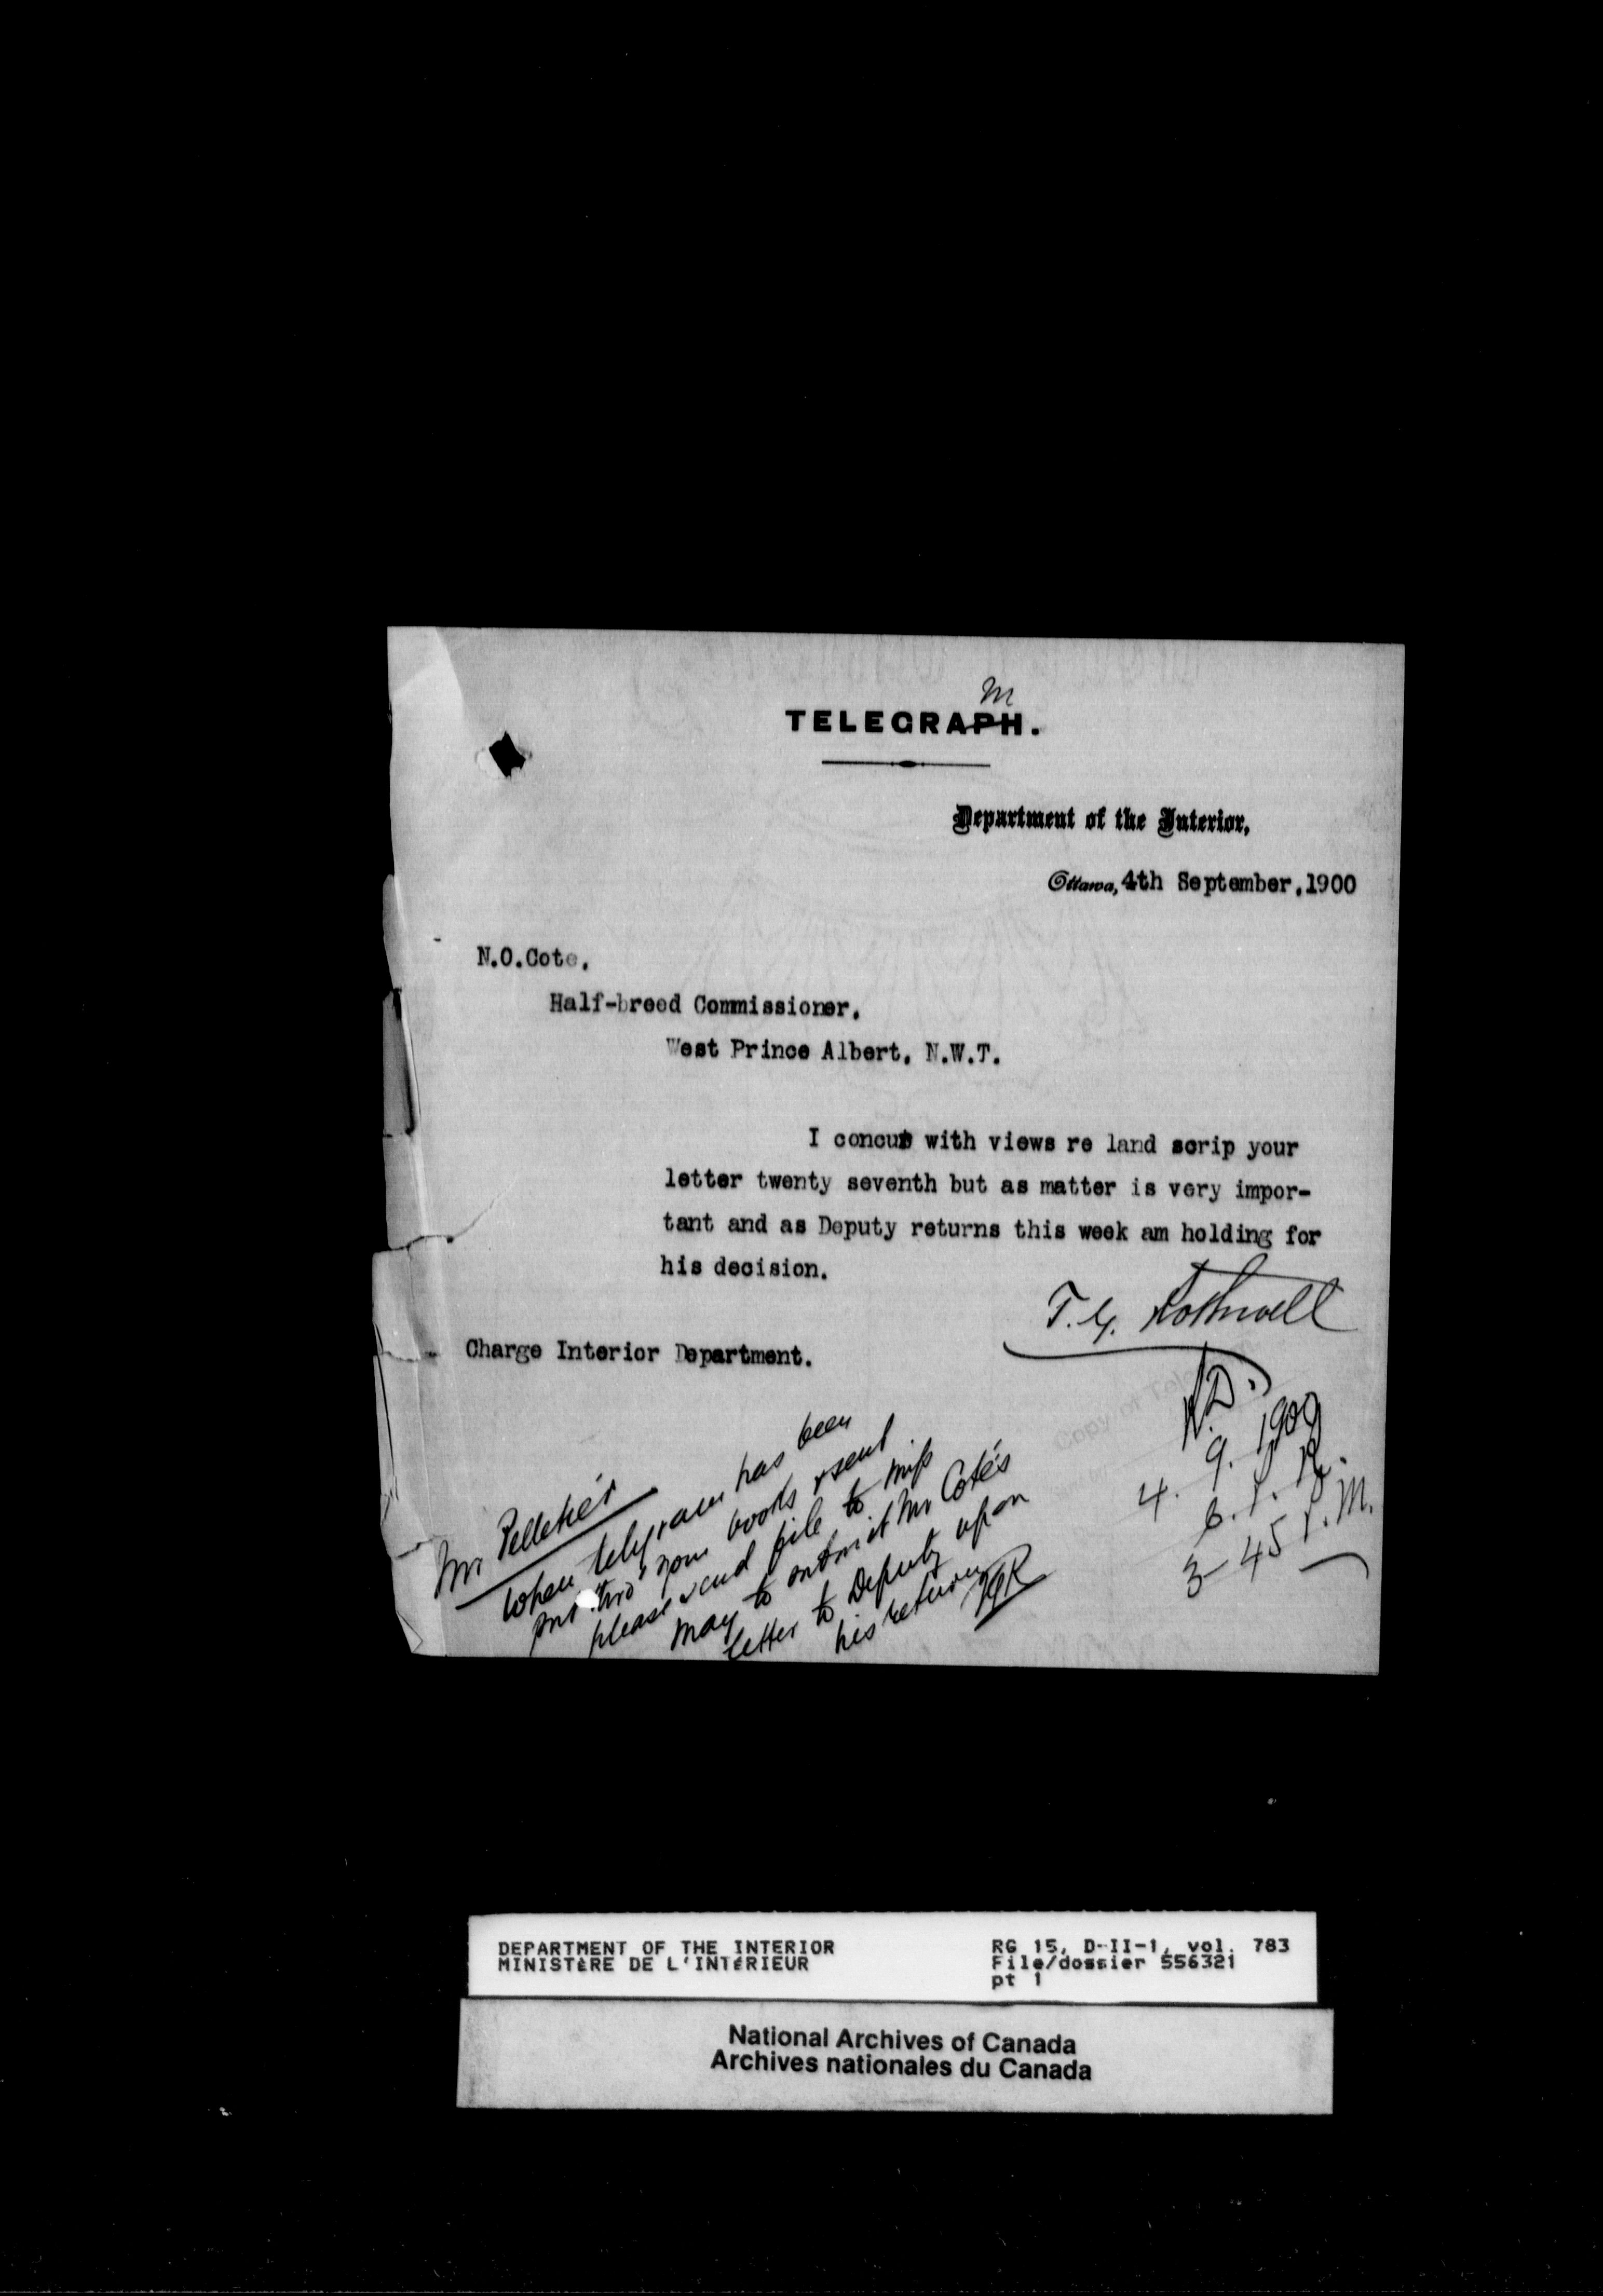 TELEGRAPH.
m
Department of the Interior,
Ottawa, 4th September, 1900
N.O.Cote.
Half-breed Commissioner.
West Prince Albert. N.W.T.
I concur with views re land scrip your
letter twenty seventh but as matter is very impor-
tant and as Deputy returns this week am holding for
his decision.
T. G. Rothwell
Charge Interior Department.
Copy of Tele
N.D.
4. 9. 1900
3-45 P.M.
Mr. Pelletier
When telegram has been
put "thro' your books & sent
please send file to Miss
May to submit Mr Coté's
letter to Deputy upon
his return
TGR
DEPARTMENT OF THE INTERIOR
MINISTÈRE DE L'INTÉRIEUR
RG 15, D-II-1, vol. 783
File/dossier 556321
pt 1
National Archives of Canada
Archives nationales du Canada